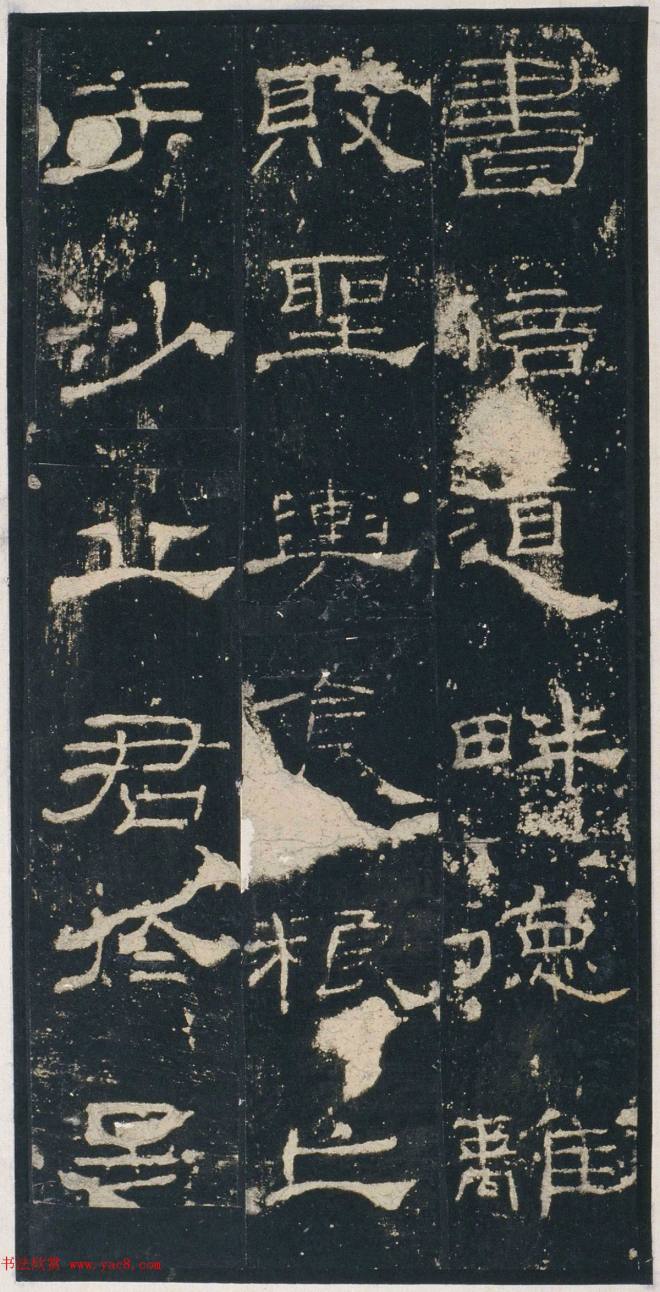 書倍道畔德離
敗聖輿食粮亡
于沙丘君於是
书法欣赏 www.yac8.com